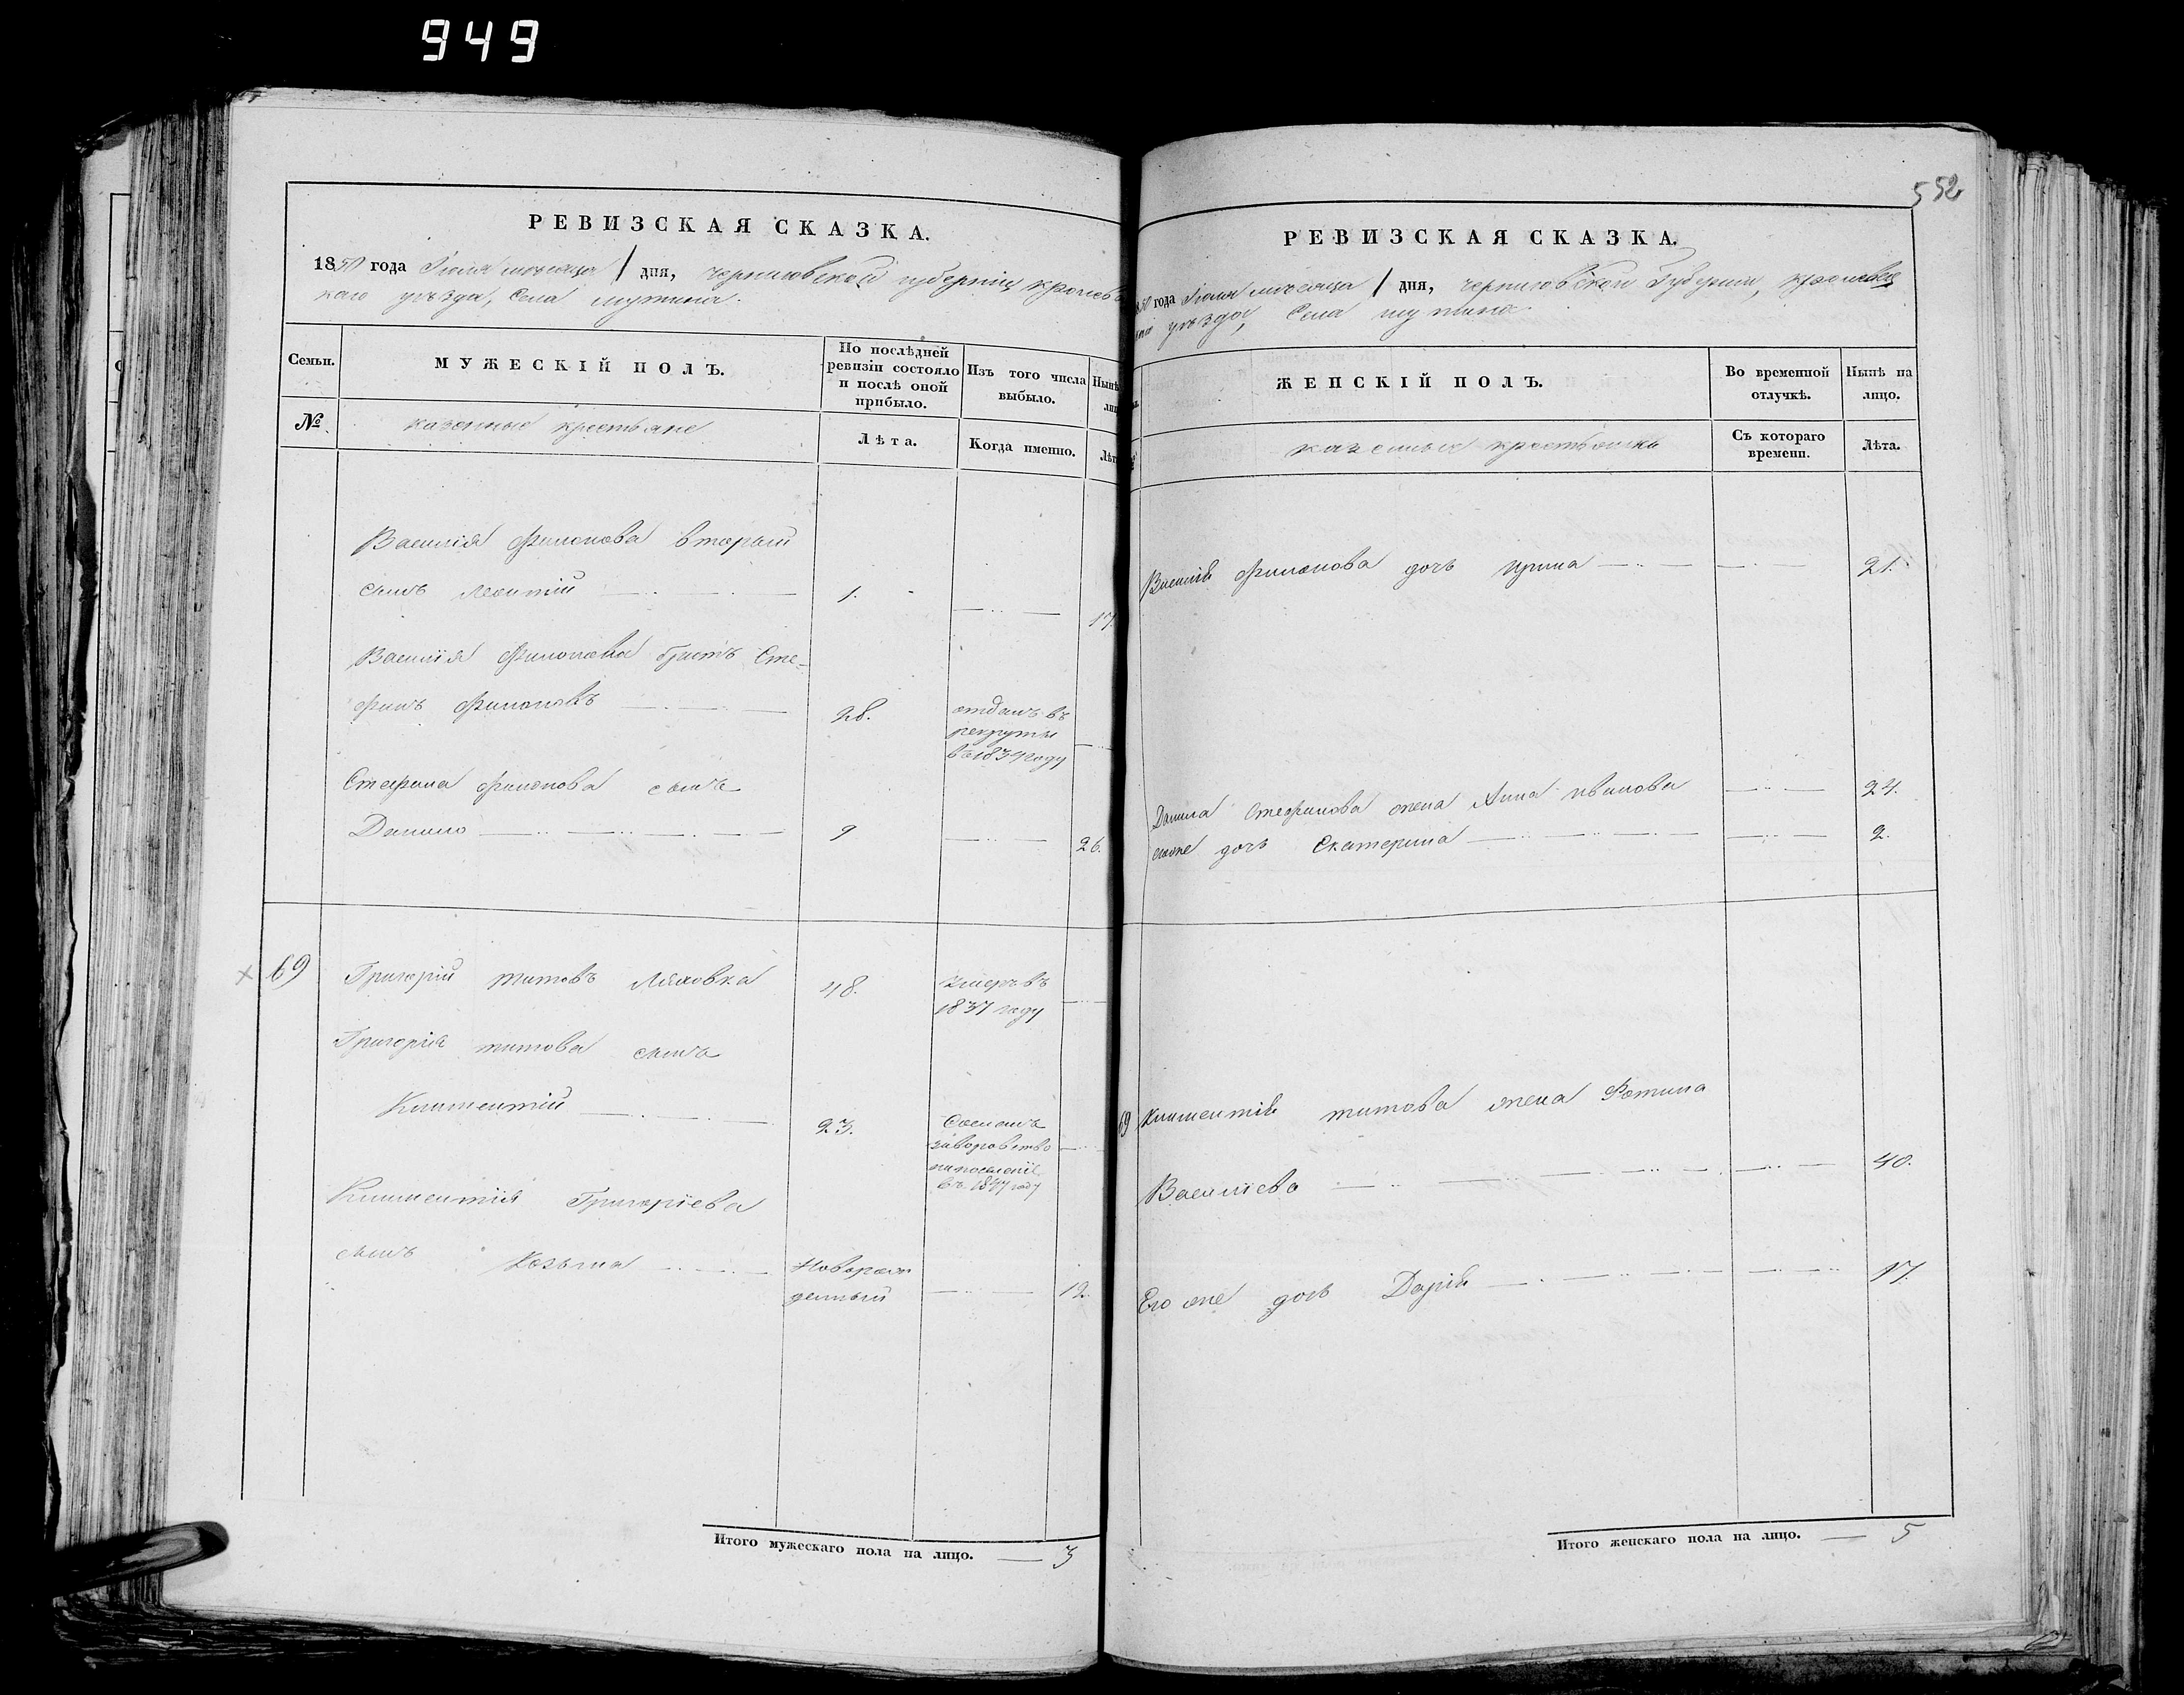 949
РЕВИЗСКАЯ СКАЗКА.
1850 года Іюля месяца 1 дня, черниговской губерніи, кролевец
каго уѣзда, Села мутина.
Семьи.
МУЖЕСКІЙ ПОЛЪ.
По послѣдней ревизіи состояло и послѣ оной прибыло.
Изъ того числа выбыло.
Нынѣ
лиц
№
казенные крестьяне
Лѣта.
Когда именно.
Лѣт
Василія Филонова вторый
сынъ Леонтій 1. 17.
Василія Филонова братъ Сте-
фанъ Филоновъ 28. отданъ въ
рекруты
въ 1834 году
Стефана Филонова сынъ
Данило 9 26.
69 Григорій титовъ Ляховка 48. умеръ въ
1837 году
Григорія титова сынъ
Климентій 23. Сосланъ
за воровство
на поселеніе
въ 1847 году
Климентія Григоріева
сынъ Козьма Новорож
денный 12.
Итого мужескаго пола на лицо. 3
552
РЕВИЗСКАЯ СКАЗКА.
1850 года Іюля мѣсяца 1 дня, черниговской Губерніи, кролевец
каго уѣзда, Села мутина
ЖЕНСКІЙ ПОЛЪ.
Во временной отлучкѣ.
Нынѣ на лицо.
казенные крестьянки
Съ котораго времени.
Лѣта.
Василія Филонова дочь ирина 21.
Данила Стефанова жена Анна иванова 24.
егоже дочь Екатерина 2.
69 Климентія титова жена Фотина
Василіева 40.
Его же дочь Дарія 17.
Итого женскаго пола на лицо. 5